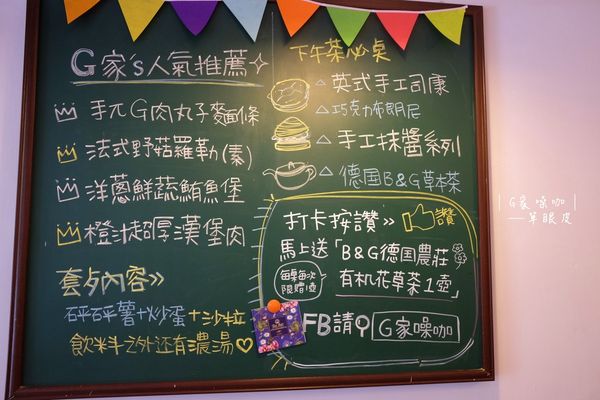 G家's人氣推薦
手工G肉丸子麵條
法式野菇羅勒(素)
洋蔥鮮蔬鮪魚堡
橙汁超厚漢堡肉
套夕內容>>
砰砰薯+炒蛋+沙拉
飲料之外还有濃湯♡
下午茶必桌
△英式手工司康
△巧克力布朗尼
△手工抹醬系列
△德国B&G草本茶
打卡按讚>>讚
馬上送「B&G德国農莊
有机花草茶1壺」
每桌每次
限贈1壺
FB請 G家噪咖
| G家噪咖 |
—單眼皮